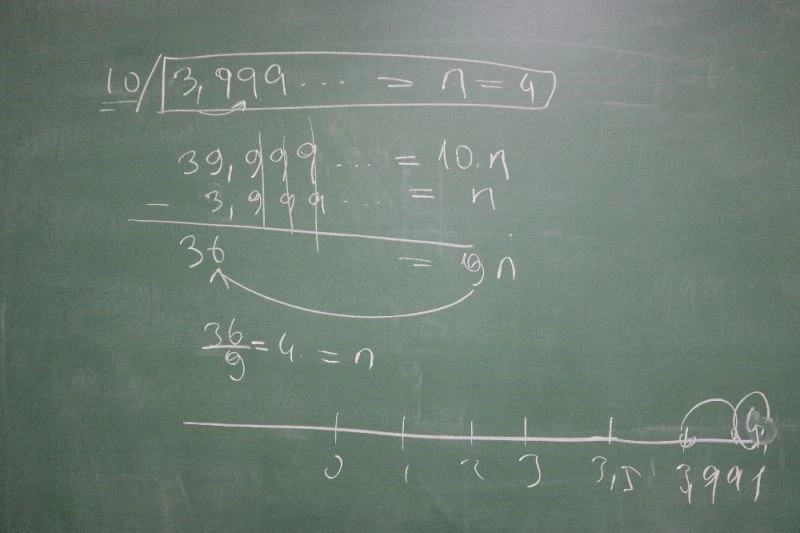 10/ 3,999... = n = 4
39,999... = 10.n
- 3,999... = n
36 = 9n
36/9 = 4. = n
4
0 1 2 3 3,5 3,99